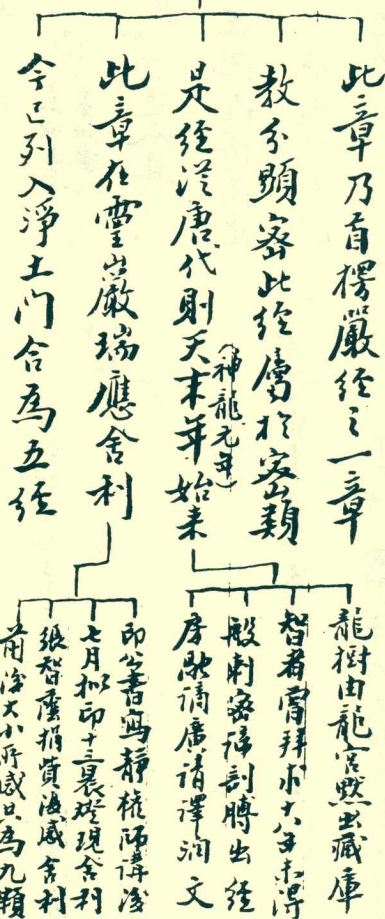 此章乃首楞嚴經之一章
教分顯密此經屬於密類
是經從唐代則天末年始来
(神龍元年)
此章在靈巖瑞應舍利
今已列入淨土门合為五經
龍樹由龍宮默出藏庫
智者嘗拜求十八年未得
般剌密諦剖膊出經
房融謫廣請譯润文
印公書寫靜權師講後
七月擬印十三晨磴現舍利
張智蔭捐貲復感舍利
前後大小所感共為九顆